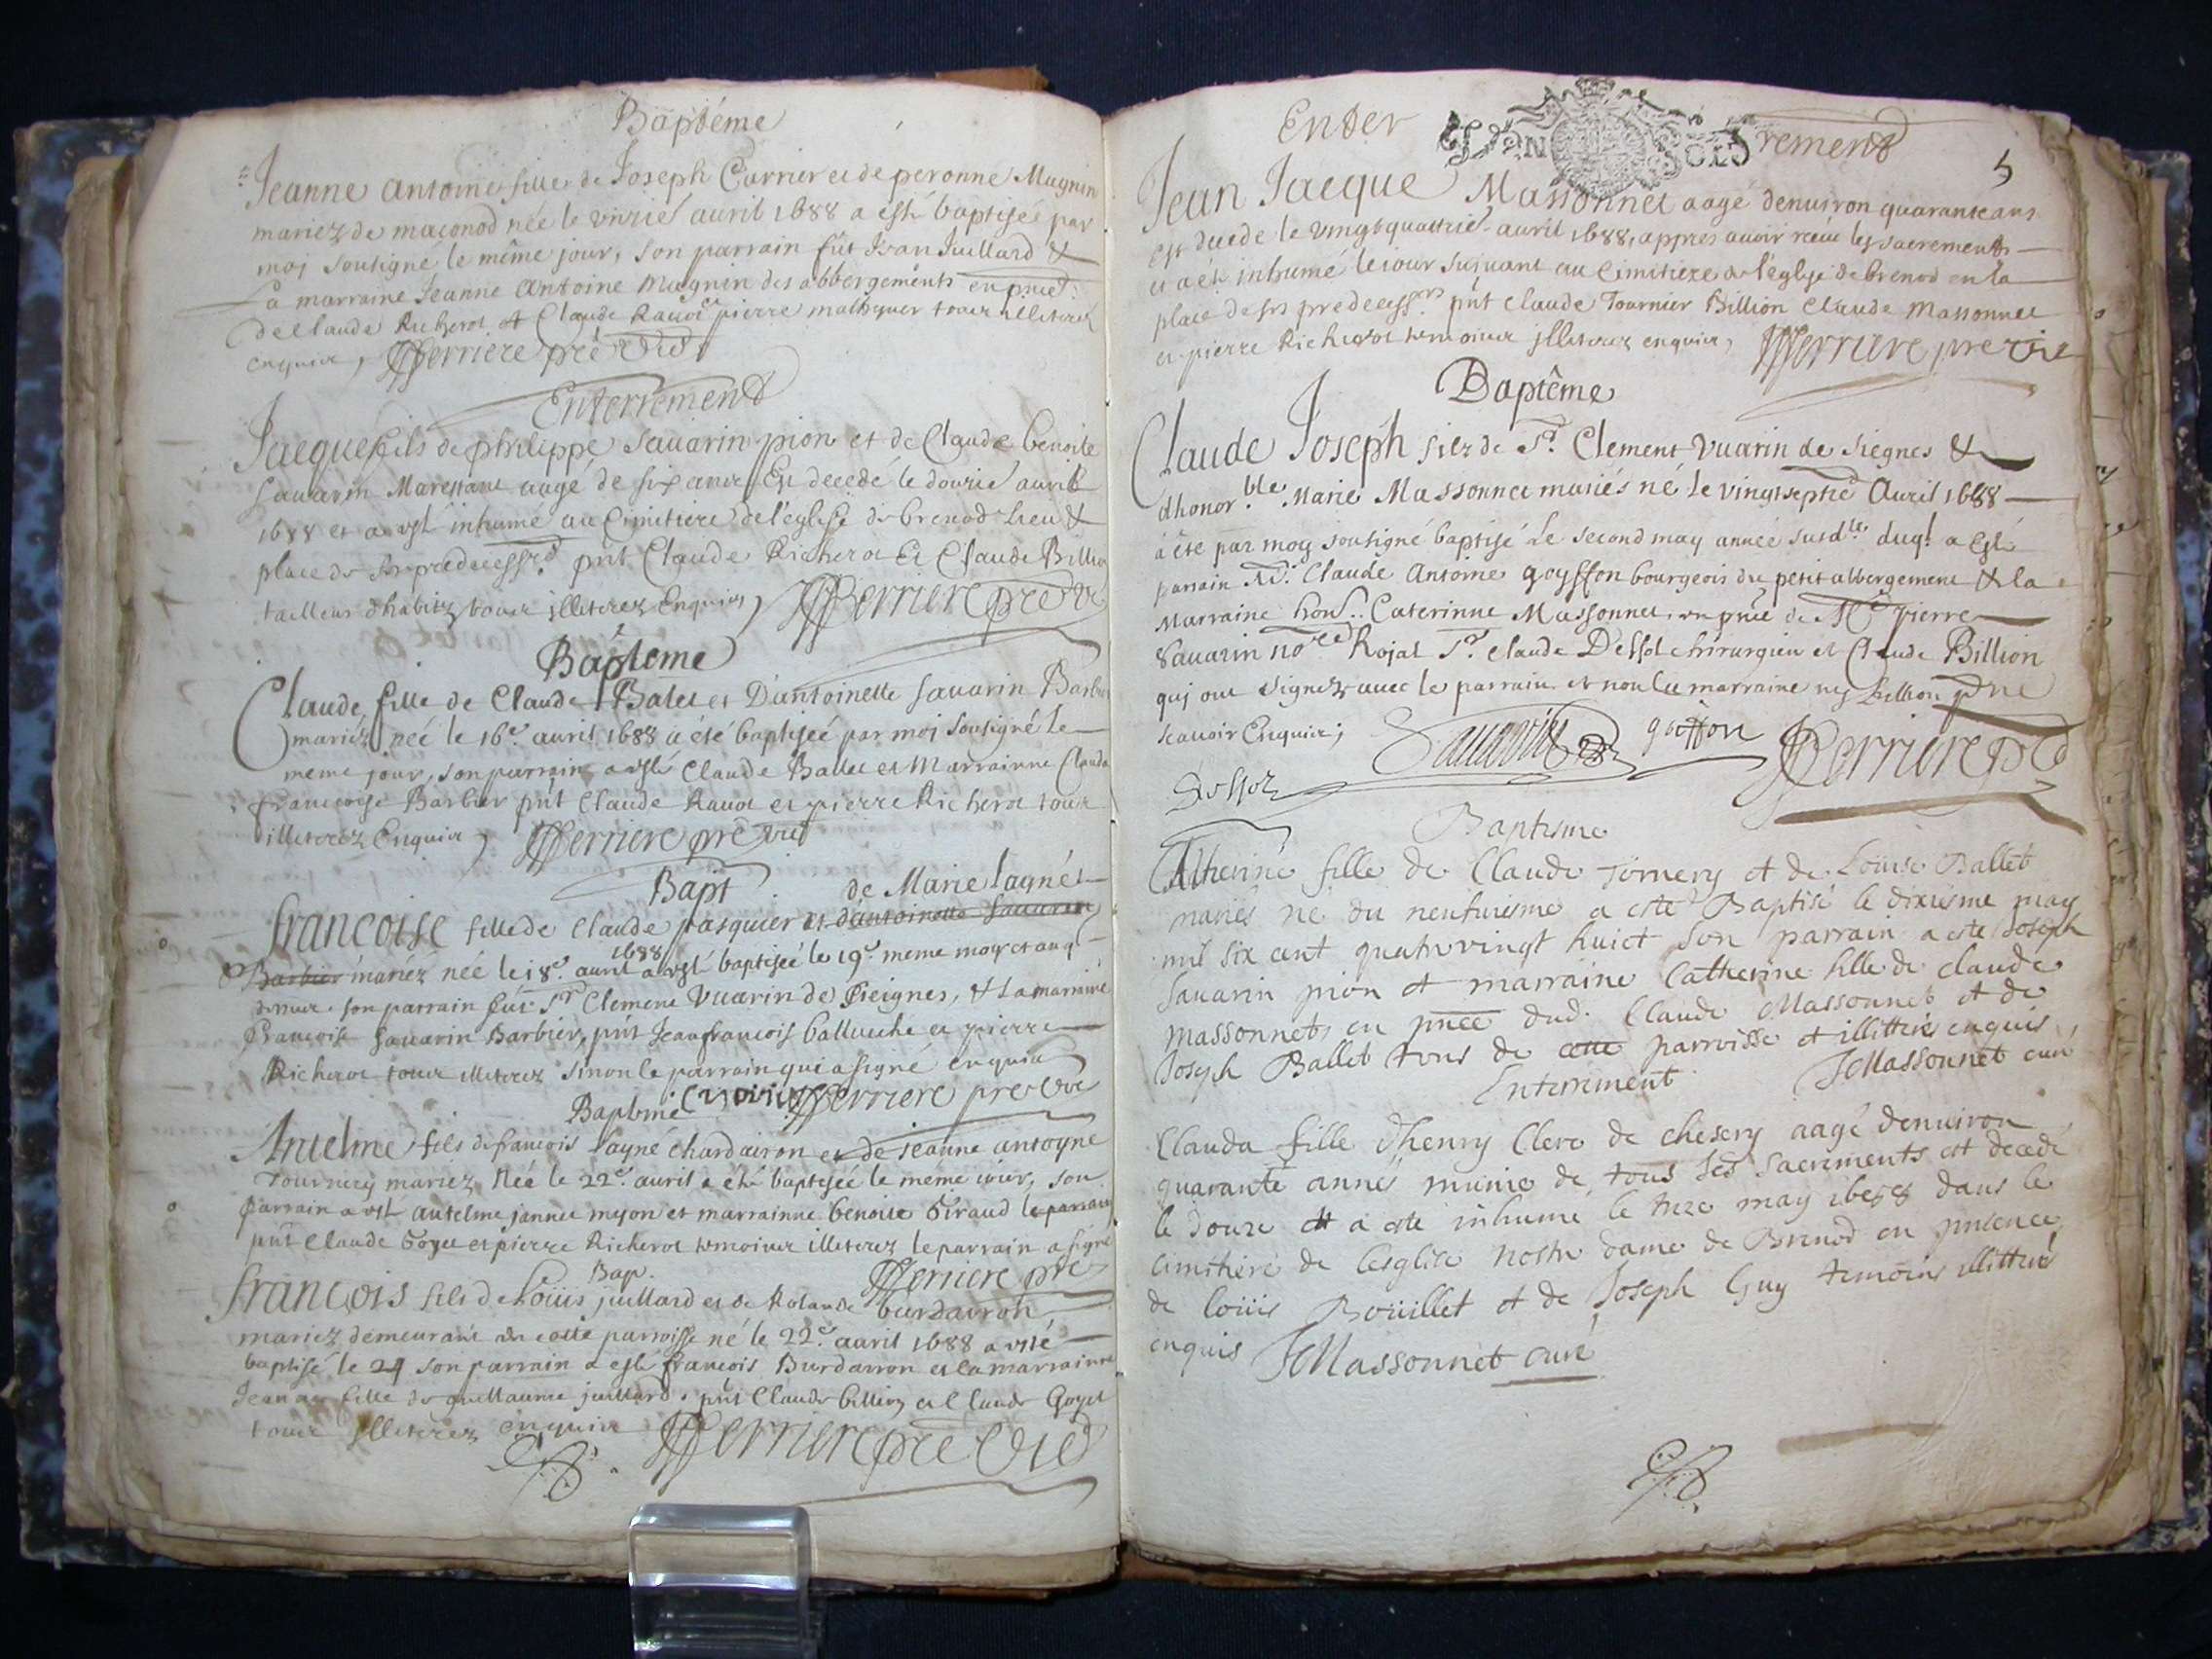 Baptéme
Jeanne Antoine fille de Joseph Carrier et de peronne Magnin
mariez de maconod née le avril 1688 a esté baptisée par
moj sousigné le même jour, son parrain fût Jean Juillard &
La marraine Jeanne Antoine Magnin des abbergements en pnce
de Claude Richerot et Claude Ravot pierre tous illeterez
enquis, JFerriere pre vic
Enterrement
Jacque fils de philippe Savarin pion et de Claude benoite
Savarin Maressant aagé de six ans Est decedé le douzié avril
1688 et a esté inhumé au Cimitiere de l'eglise de brenod Lieu &
place de ses predecessrs pnt Claude Richerot Et Claude Billion
tailleur d'habitz tous illeterez Enquis, JFerriere pre vic
Baptéme
Claude fille de Claude Balet et D'antoinette Savarin Barbier
mariez née le 16e avril 1688 a été baptisée par moj sousigné le
meme jour, son parrain a esté Claude Ballet et Marrainne Claude
francoise Barbier pnt Claude Ravot et pierre Richerot tous
illeterez Enquis, JFerriere pre vic
Bapt de Marie Lagnés
francoise fille de Claude pasquier et d'antoinette Savarin
Barbier mariéz née le 18e avril 1688 a esté baptisée le 19e meme moys et an q
dessus son parrain fut Sr Clement Vuarin de Sieignes, & La marraine
francoise Savarin Barbier, pnt Jean francois balluche et pierre
Richerot tous illeterez sinon le parrain qui a signé enquis
Vuarin JFerriere pre vic
Baptéme
Antelme fils de francois Lagné chardairon et de jeanne antoyne
Tournery mariez Née le 22e avril a été baptisée le même jour, son
parrain a esté antelme jannet myon et marrainne benoite Giraud le parrain
pnt Claude Goyet et pierre Richerot temoins illeterez le parrain a signé
Bap. JFerriere pre
francois fils de Loüis juillard et de Rolande burdairon
mariez demeurant en cette parroisse né le 22e avril 1688 a esté
baptisé le 24 son parrain a esté francois Burdairon et la marrainne
Jeanne fille de guillaume juillard, pnt Claude billion et Claude Goyet
tous illeterez enquis JFerriere pre vic
Enter rement
5
Jean Jacque Massonnet aagé denviron quarante ans
est decede le vingt quattrié avril 1688, appres avoir receu les sacrements
et a été inhumé le jour suivant au Cimitiere de l'eglise de brenod en la
place de ses predecessrs pnt Claude Tournier Billion Claude Massonnet
et pierre Richerot temoins illeterez enquis, JFerriere pre vic
Baptême
Claude Joseph filz de Sr Clement Vuarin de Siegnes &
dhonorble Marie Massonnet mariés né le vingt septié Avril 1688
a été par moy sousigné baptisé le second may année susdte duql a esté
parrain Sr Claude Antoine goyffon bourgeois du petit abbergement & la
Marraine hon. Caterinne Massonnet, en pnce de Me pierre
Savarin nore Rojal Sr Claude Dessol chirurgien et Claude Billion
quj ont signez avec le parrain et non la marraine nej billion pr ne
scavoir Enquis; Savarin goiffon JFerriere pre
Dessol
Baptesme
Catherine fille de Claude Tornery et de Louise Ballet
mariés né du neufuiesme a esté Baptisé le dixiesme may
mil six cent quatrevingt huict son parrain a esté Joseph
Savarin pion et marraine Catherine fille de claude
massonnet, en pnce dud. Claude Massonnet et de
Joseph Ballet tous de cette parroisse et illittrés enquis,
JMassonnet curé
Enterrement
Clauda fille d'henry Clerc de chesery aagé denviron
quarante annés munie de tous ses sacrements est decedé
le douze et a esté inhumé le treze may 1688 dans le
cimitiere de lesglise nostre dame de Brenod en presence
de loüis Boüillet et de Joseph Guy temoins illittrés
enquis JMassonnet curé